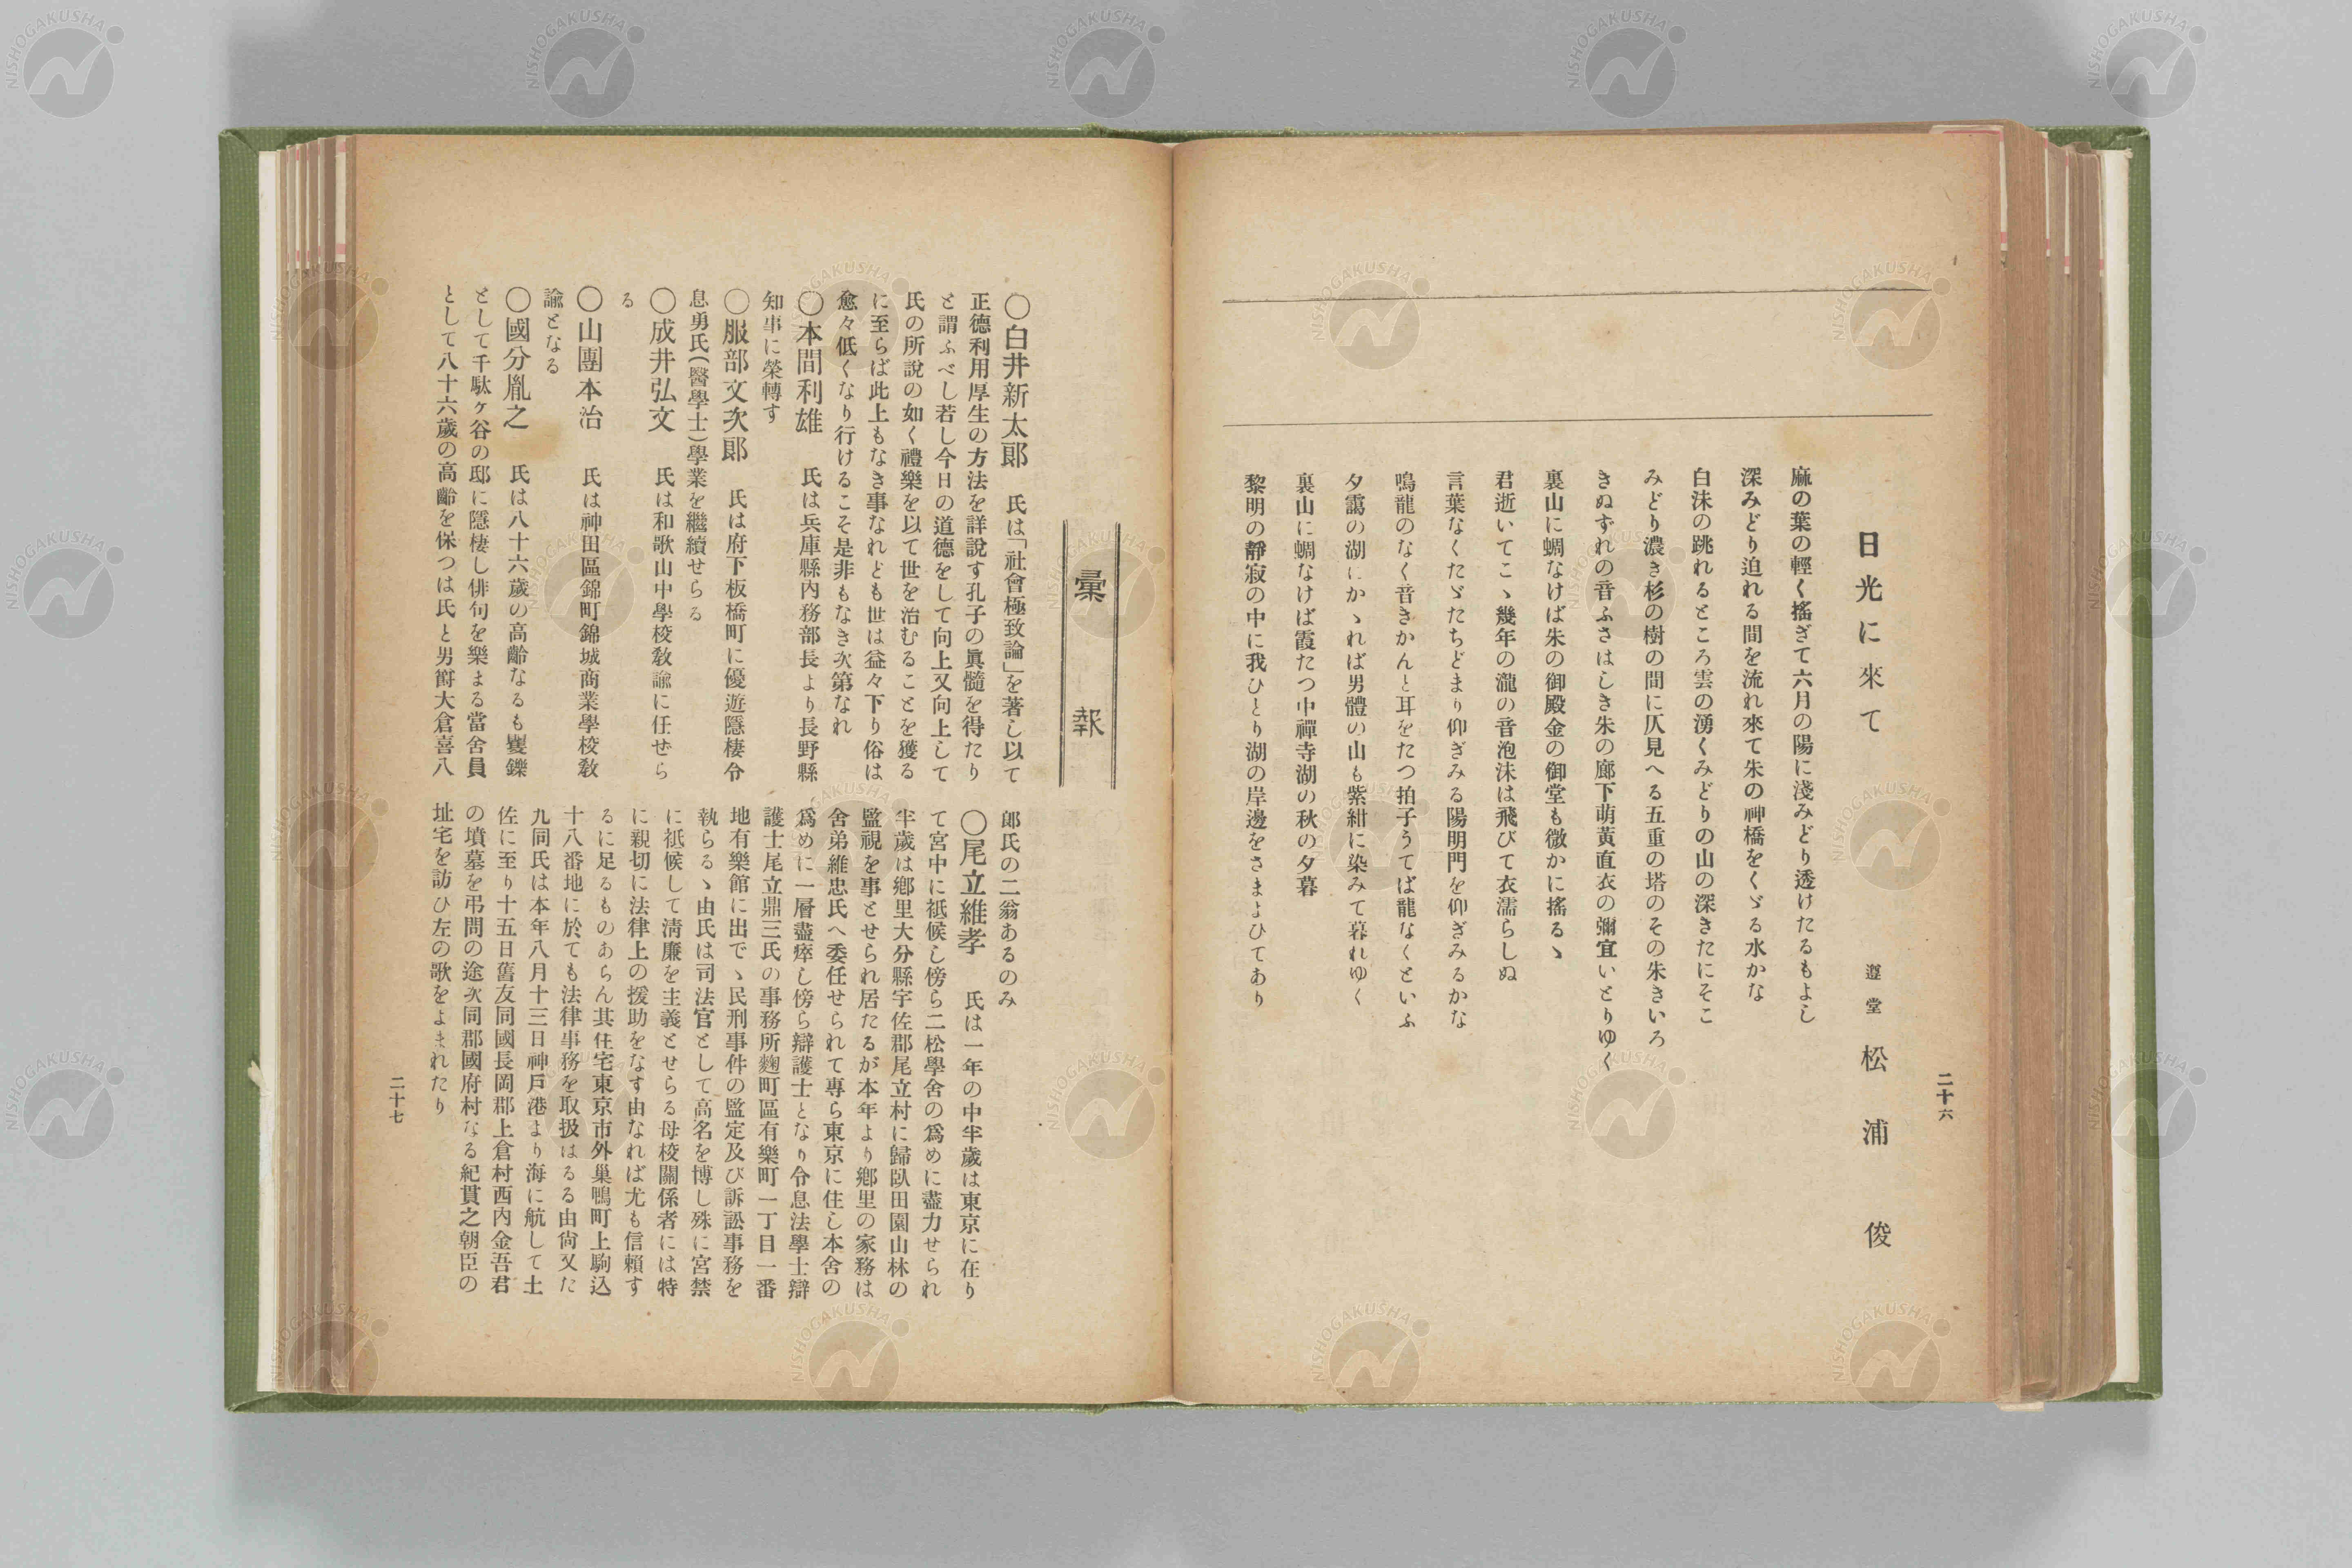 二十六
日光に來て
遵堂 松浦俊
麻の葉の輕く搖ぎて六月の陽に淺みどり透けたるもよし
深みどり迫れる間を流れ來て朱の神橋をくゞる水かな
白沫の跳れるところ雲の湧くみどりの山の深きたにそこ
みどり濃き杉の樹の間に仄見へる五重の塔のその朱きいろ
きぬずれの音ふさはしき朱の廊下萌黄直衣の彌宜いとりゆく
裏山に蜩なけば朱の御殿金の御堂も微かに搖るゝ
君逝いてこゝ幾年の瀧の音泡沫は飛びて衣濡らしぬ
言葉なくたゞたちどまり仰ぎみる陽明門を仰ぎみるかな
鳴龍のなく音きかんと耳をたつ拍子うてば龍なくといふ
夕靄の湖にかゝれば男體の山も紫紺に染みて暮れゆく
裏山に蜩なけば霞たつ中禪寺湖の秋の夕暮
黎明の靜寂の中に我ひとり湖の岸邊をさまよひてあり
彙報
〇白井新太郎 氏は「社會極致論」を著し以て
正德利用厚生の方法を詳說す孔子の眞髓を得たり
と謂ふべし若し今日の道德をして向上又向上して
氏の所說の如く禮樂を以て世を治むることを獲る
に至らば此上もなき事なれども世は益々下り俗は
愈々低くなり行けるこそ是非もなき次第なれ
〇本間利雄 氏は兵庫縣內務部長より長野縣
知事に榮轉す
〇服部文次郞 氏は府下板橋町に優遊隱棲令
息勇氏(醫學士)學業を繼續せらる
〇成井弘文 氏は和歌山中學校敎諭に任ぜら
る
〇山團本治 氏は神田區錦町錦城商業學校敎
諭となる
〇國分胤之 氏は八十六歲の高齡なるも矍鑠
として千駄ヶ谷の邸に隱棲し俳句を樂まる當舍員
として八十六歲の高齡を保つは氏と男爵大倉喜八
郞氏の二翁あるのみ
〇尾立維孝 氏は一年の中半歲は東京に在り
て宮中に祗候し傍ら二松學舍の爲めに盡力せられ
半歲は鄕里大分縣宇佐郡尾立村に歸臥田園山林の
監視を事とせられ居たるが本年より鄕里の家務は
舍弟維忠氏へ委任せられて專ら東京に住し本舍の
爲めに一層盡瘁し傍ら辯護士となり令息法學士辯
護士尾立鼎三氏の事務所麴町區有樂町一丁目一番
地有樂館に出でゝ民刑事件の監定及び訴訟事務を
執らるゝ由氏は司法官として高名を博し殊に宮禁
に祗候して淸廉を主義とせらる母校關係者には特
に親切に法律上の援助をなす由なれば尤も信賴す
るに足るものあらん其住宅東京市外巢鴨町上駒込
十八番地に於ても法律事務を取扱はるる由尙又た
九同氏は本年八月十三日神戶港より海に航して土
佐に至り十五日舊友同國長岡郡上倉村西內金吾君
の墳墓を弔問の途次同郡國府村なる紀貫之朝臣の
址宅を訪ひ左の歌をよまれたり
二十七